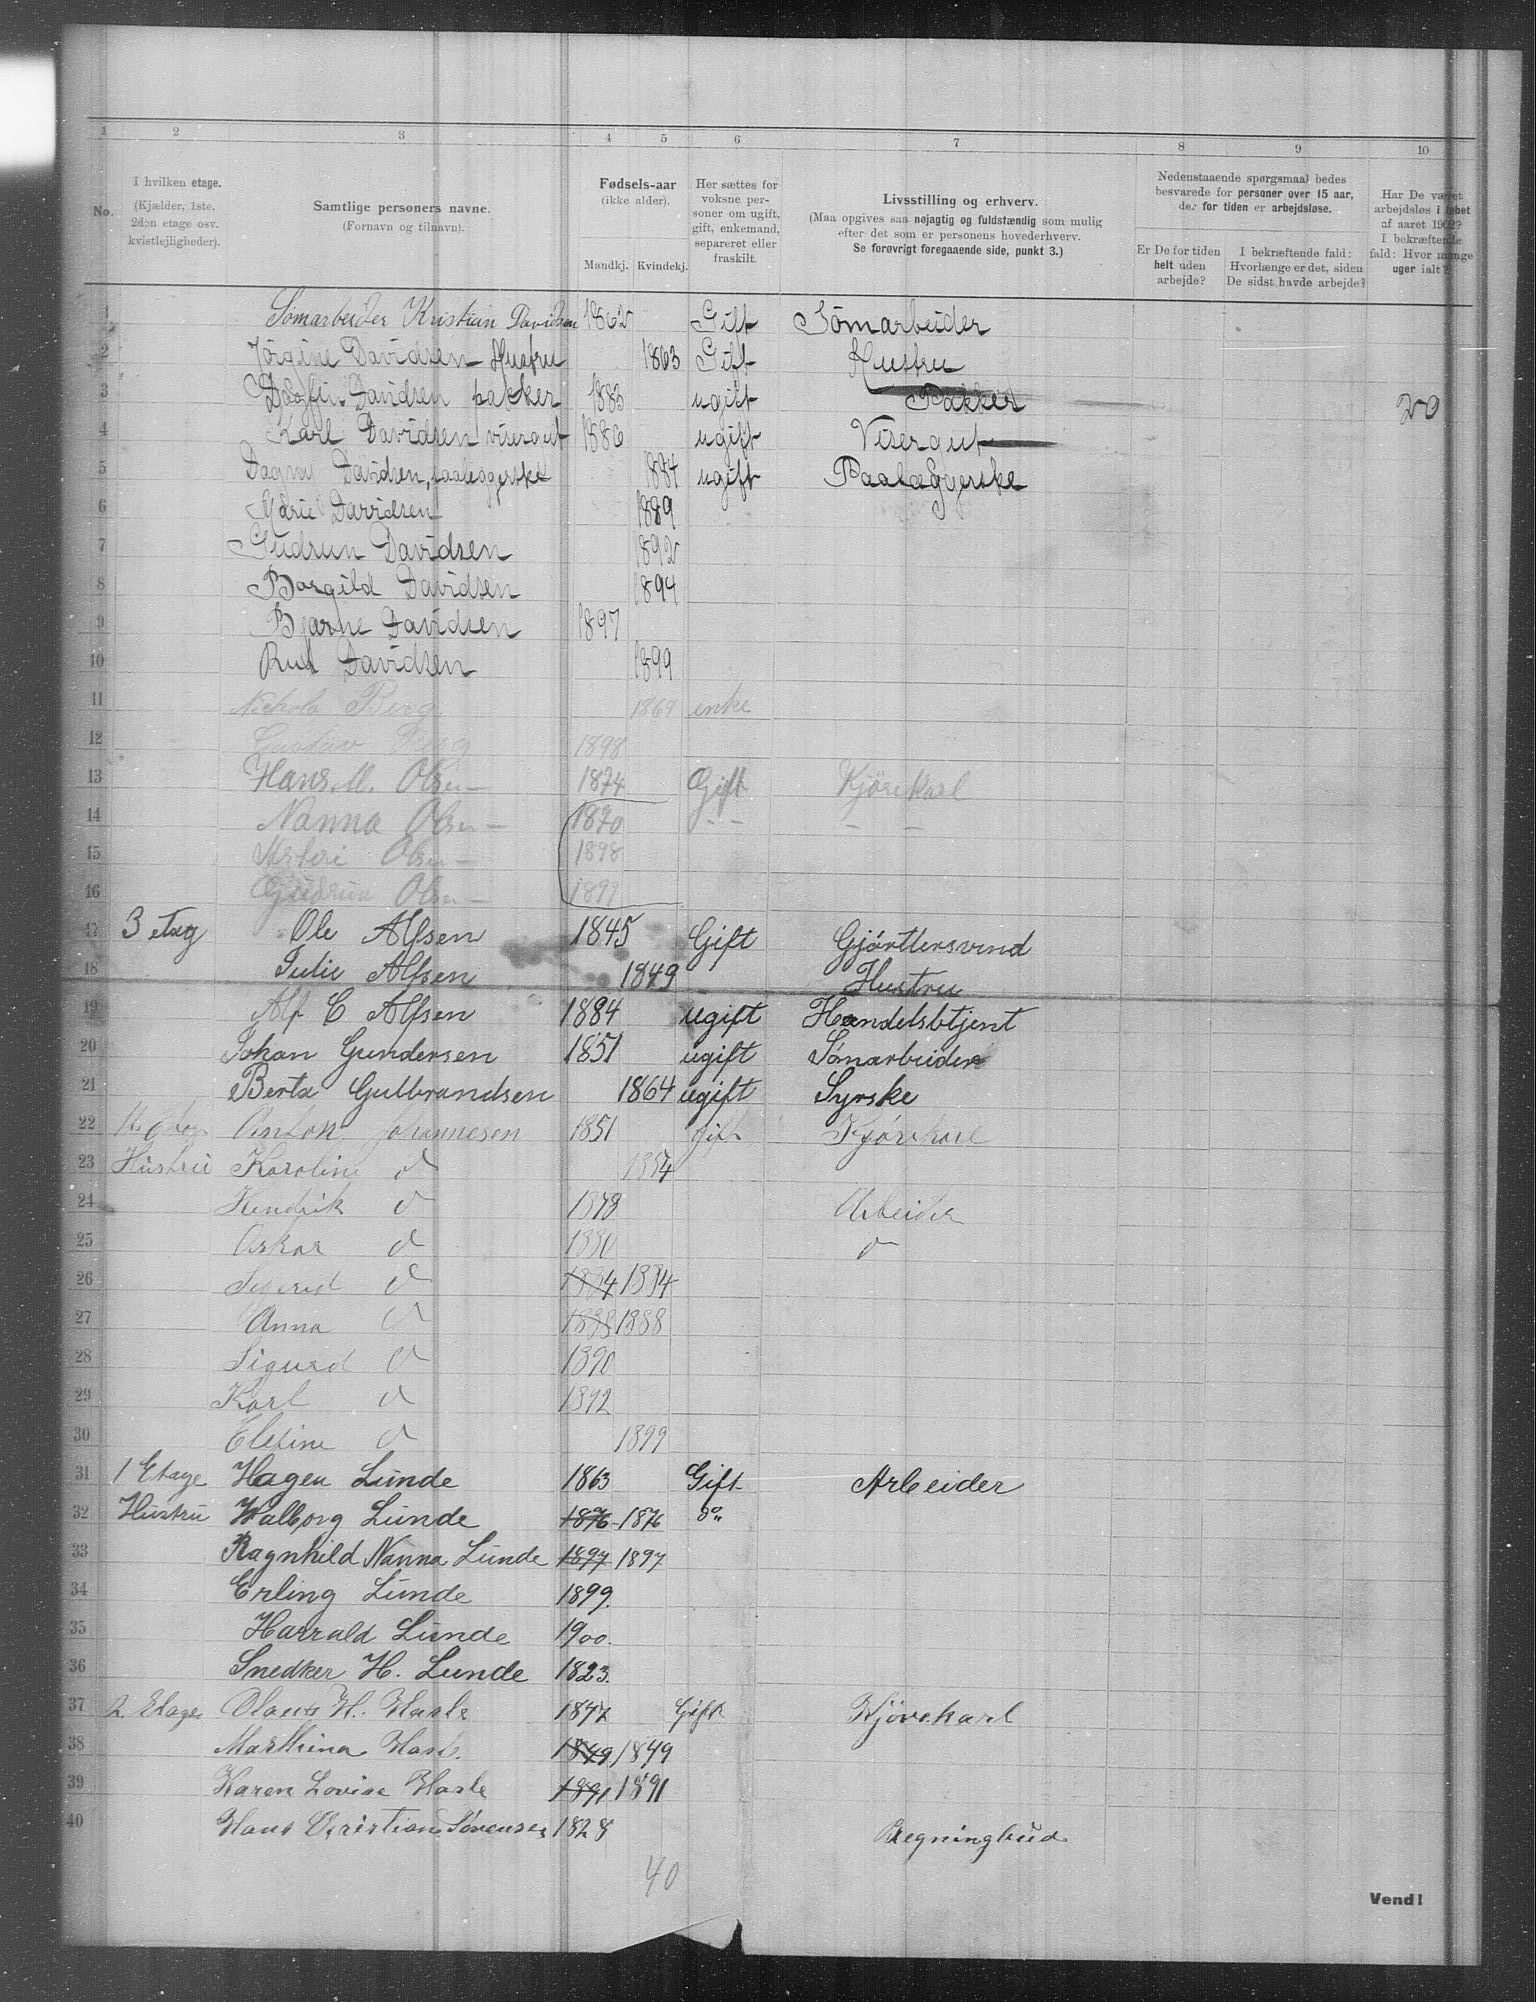 1 2 3 4 5 6 7 8 9 10
No.
I hvilken etage.
(Kjælder, 1ste,
2den etage osv.
kvistlejligheder).
Samtlige personers navne.
(Fornavn og tilnavn).
Fødsels-aar
(ikke alder).
Mandkj. Kvindekj.
Her sættes for
voksne per-
soner om ugift,
gift, enkemand,
separeret eller
fraskilt.
Livsstilling og erhverv.
(Maa opgives saa nøjagtig og fuldstændig som mulig
efter det som er personens hovederhverv.
Se forøvrigt foregaaende side, punkt 3.)
Nedenstaaende spørgsmaal bedes
besvarede for personer over 15 aar,
der for tiden er arbejdsløse.
Er De for tiden
helt uden
arbejde?
I bekræftende fald:
Hvorlænge er det, siden
De sidst havde arbejde?
Har De været
arbejdsløs i løbet
af aaret 1902?
I bekræftende
fald: Hvor mange
uger ialt?
1 Sömarbeider Kristian Davidsen 1862 Gift Sömarbeider
2 Jörgine Davidsen Hustru 1863 Gift Hustru
3 Davidsen pakker 1883 ugift Pakker 20
4 Karl Davidsen visergut 1886 ugift Visergut
5 Dagny Davidsen, paaleggerske 1884 ugift Paalæggerske
6 Marie Davidsen 1889
7 Gudrun Davidsen 1892
8 Borgild Davidsen 1894
9 Bjarne Davidsen 1897
10 Rut Davidsen 1899
11 Berg 1869 enke
12 Gustav Berg 1898
13 Hans M. Olsen 1874 Gift Kjörekarl
14 Nanna Olsen 1870 - - - -
15 Olsen 1898
16 Gudrun Olsen 1897
17 3 etag Ole Alfsen 1845 Gift Gjörtlersvend
18 Julie Alfsen 1849 Hustru
19 Alf C Alfsen 1884 ugift Handelsbtjent
20 Johan Gundersen 1851 ugift Sömarbeider
21 Berta Gulbrandsen 1864 ugift Syrske
22 Anton Johannesen 1851 Gift Kjörekarl
23 Hustru Karoline d 1854
24 Hendrik d 1878 Arbeider
25 Oskar d 1880 d
26 Sigrid d 1884 1884
27 Anna d 1888 1888
28 Sigurd d 1890
29 Karl d 1892
30 Elefine d 1899
31 1 Etage Hagen Lunde 1863 Gift Arbeider
32 Hustru Walborg Lunde 1876 - 1876 do
33 Ragnhild Nanna Lunde 1897 1897
34 Erling Lunde 1899.
35 Harrald Lunde 1900.
36 Snedker H. Lunde 1823.
37 2. Etage Olaus H. Hasle 1847 Gift Kjörekarl
38 Marthina Hasle 1849 1849
39 Karen Lovise Hasle 1891 1891
40 Hans Christian Sörensen 1828 Regningbud
40
Vend!